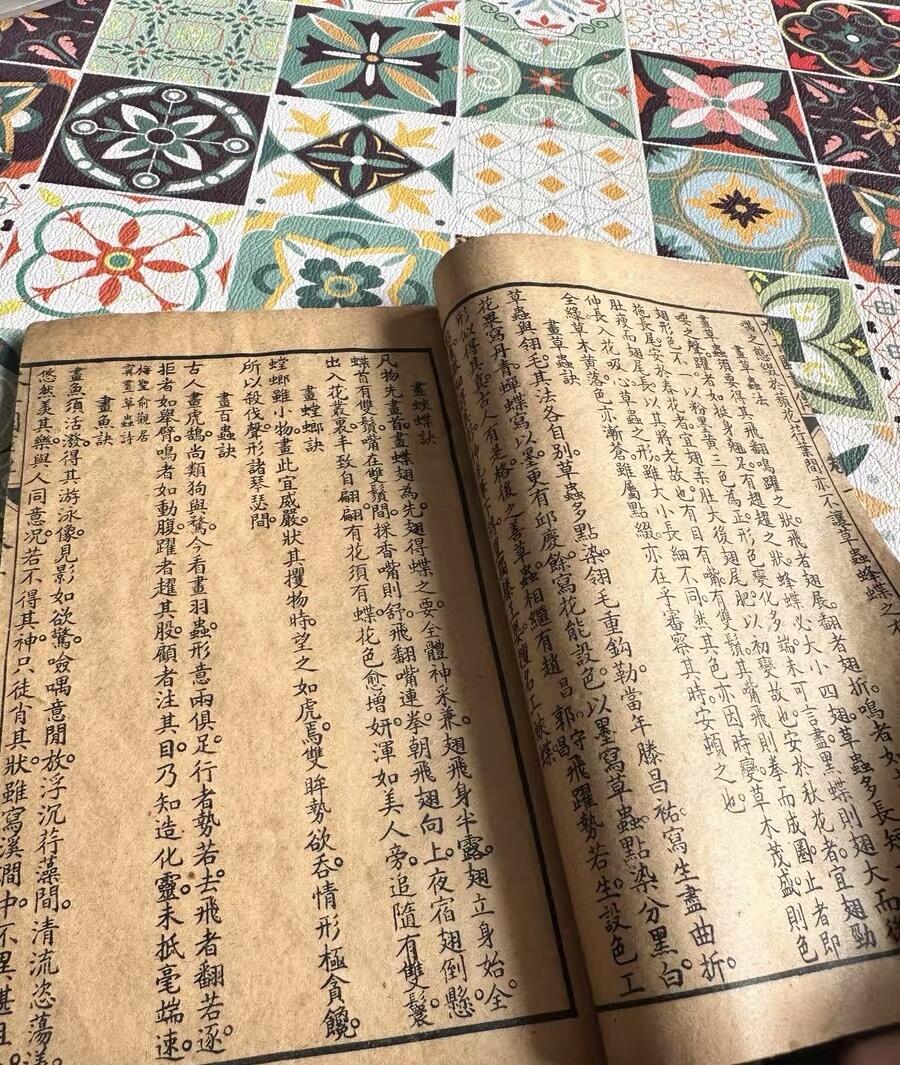 鳴之態綴於蘋花荇葉間亦不讓草蟲蜂蝶之
畫草蟲法
畫草蟲須要得其飛翻鳴躍之狀。飛者翅展。翻者翅折。鳴者如
之聲。躍者如挺身翹足。有趯趯之狀。蜂蝶必大小四翅。草蟲多長短
翅。形色不以粉黑黃三色為正。形色變化多端。未可言盡。黑蝶則翅大而後
拖長尾。安於春花者。宜翅柔肚大後翅尾肥。以初變故也。安於秋花者。宜翅勁
肚瘦而尾長。以其將老故也。有目有嘴有雙鬚。其嘴飛則拳而成圈。止者即
伸長入花吸心。草蟲之形。雖大小長細不同。然其色亦因時變。草木茂盛則色
全綠。草木黃落。色亦漸蒼。雖屬點綴。亦在乎審察其時。安頓之也
畫草蟲訣
草蟲與翎毛。其法各自別。草蟲多點染。翎毛重鈎勒。當年滕昌祐。寫生盡曲折。
花果寫丹青。蟬蝶寫以墨。更有邱慶餘。寫花能設色。以墨寫草蟲。點染分黑白。
形似得其真。古人有是格。後之善草蟲。相繼有趙昌。郭飛躍勢若生。設色工
名工蛺蝶。
畫蛺蝶訣
凡物先畫首。畫蝶翅為先。翅得蝶之要。全體神采兼。翅飛身半露。翅立身始全。
蝶首有雙鬚。嘴在雙鬚間。採香嘴則舒。飛翻嘴連拳。朝飛翅向上。夜宿翅倒懸。
出入花叢裏。丰致自翩翩。有花須有蝶。花色愈增妍。渾如美人旁。追隨有雙鬟。
畫螳螂訣
螳螂雖小物。畫此宜威嚴。狀其攫物時。望之如虎焉。雙眸勢欲吞。情形極貪饞。
所以殺伐聲。形諸琴瑟間。
畫百蟲訣
古人畫虎鵠。尚類狗與鶩。今看畫羽蟲。形意兩俱足。行者勢若去。飛者翻若逐。
拒者如舉臂。鳴者如動腹。躍者趯其股。顧者注其目。乃知造化靈。未抵毫端速。
梅聖俞觀居
寧畫草蟲詩
畫魚訣
畫魚須活潑。得其游泳像。見影如欲驚。噞喁意閒放。浮沉荇藻間。清流恣蕩漾
悠然羨其樂。與人同意況。若不得其神。只徒肖其狀。雖寫溪澗中。不異